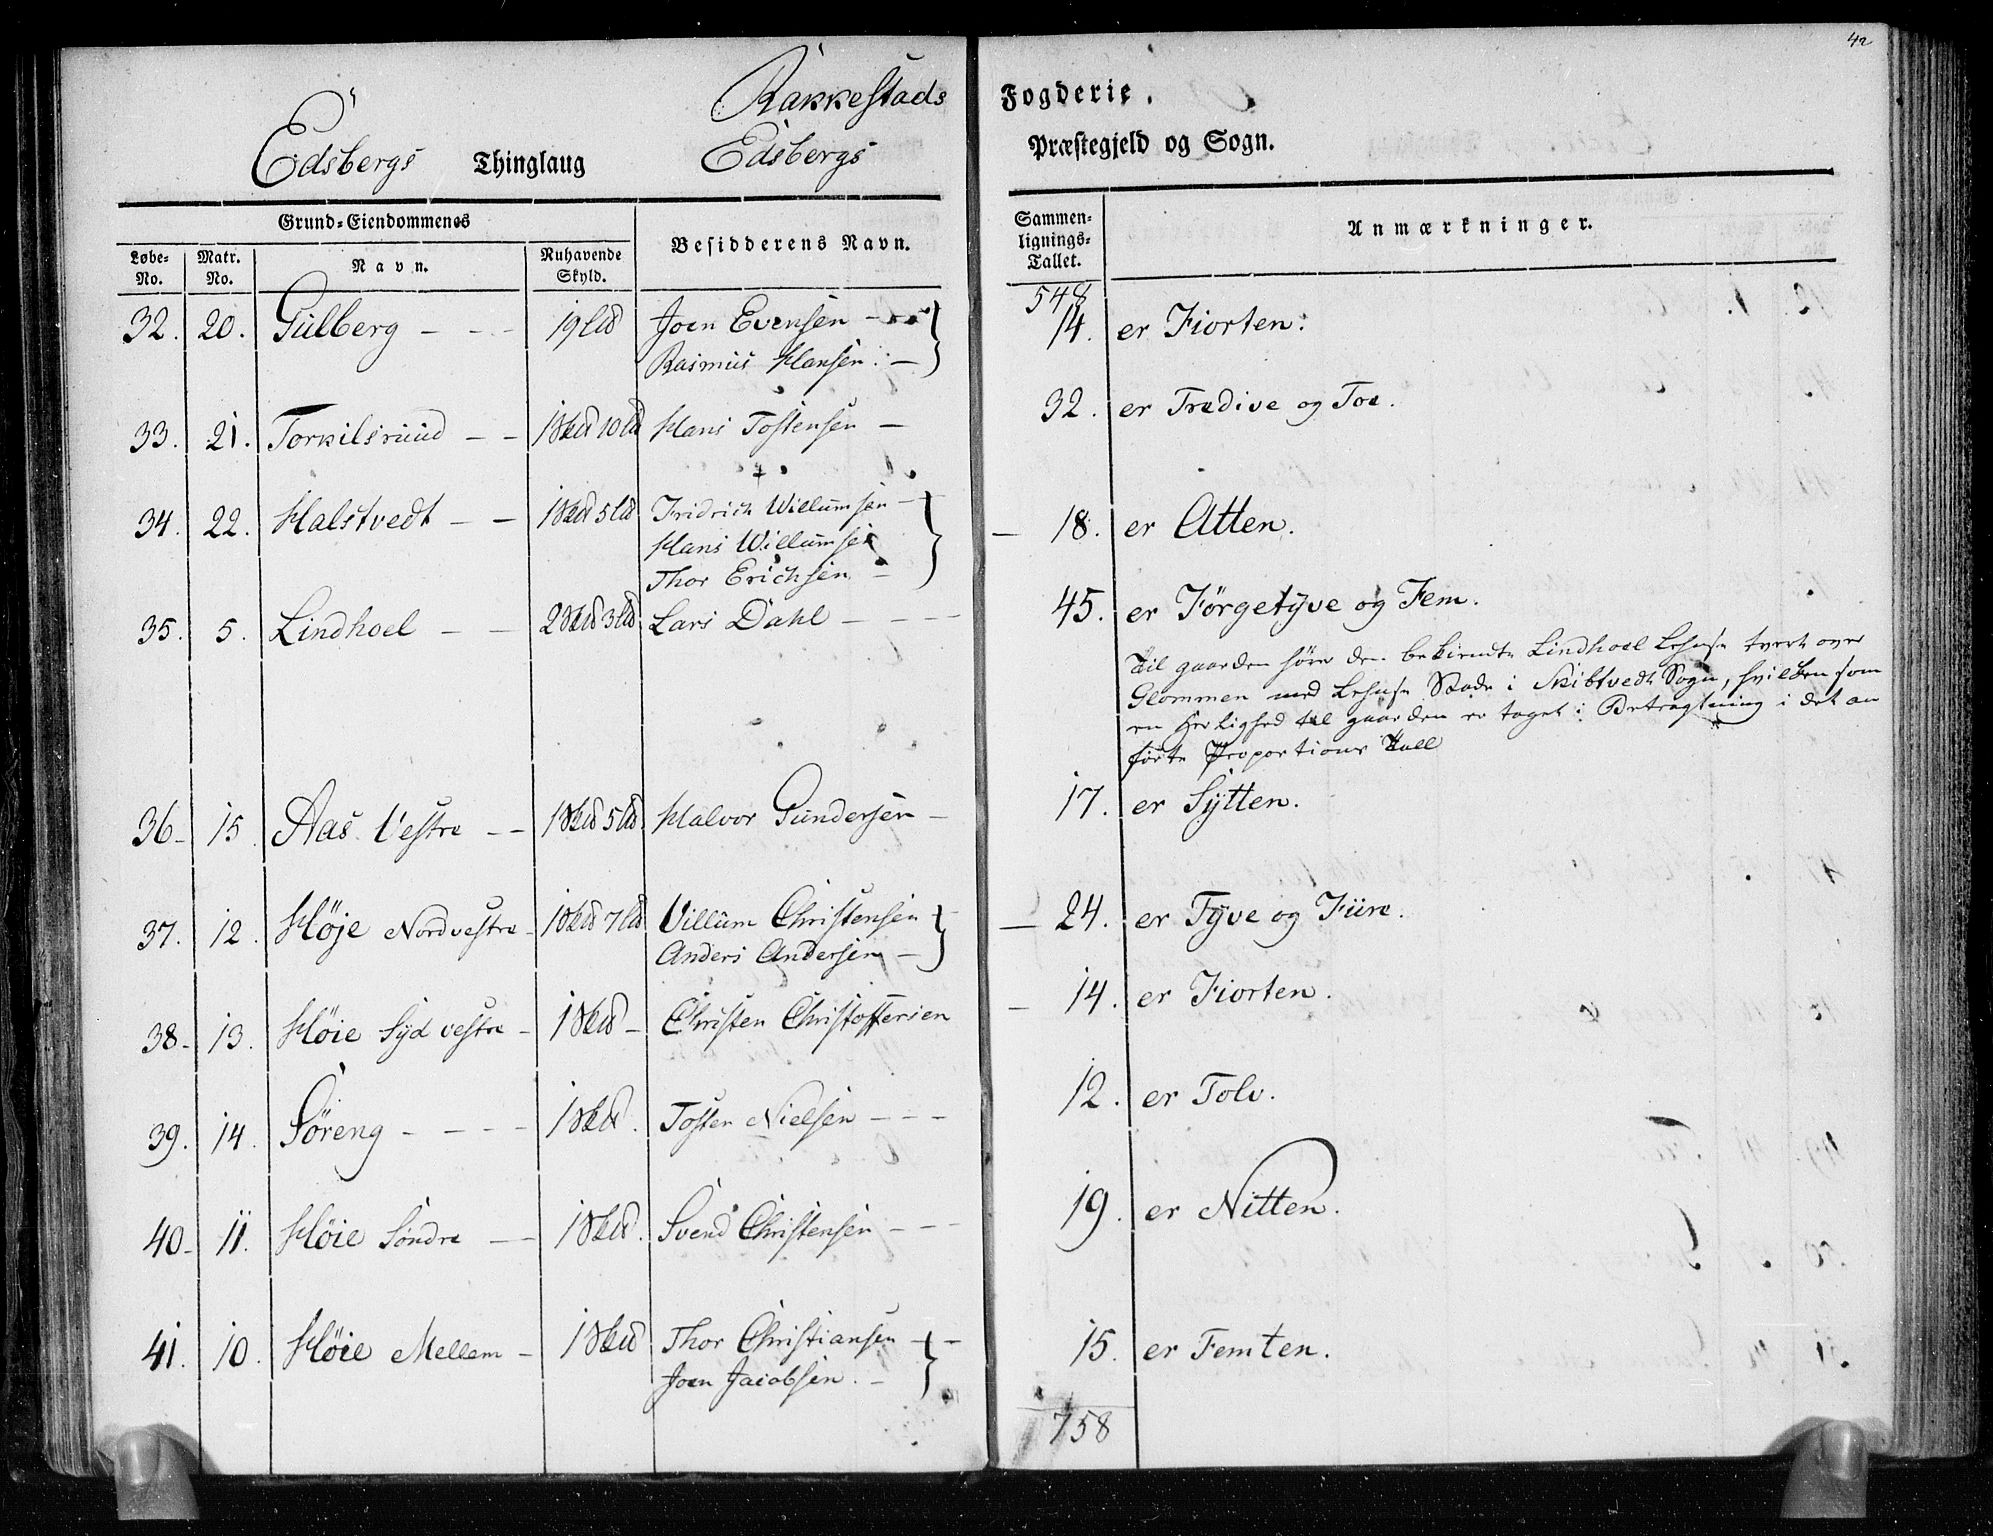 42
Rakkestads Fogderie.
Edsbergs Thinglaug Edsbergs Præstegjeld og Sogn.
Grund-Eiendommenes
Besidderens Navn.
Sammen-
lignings-
Tallet.
Anmærkninger.
Løbe-
No.
Matr.
No.
Navn.
Ruhavende
Skyld.
548
32. 20. Gulberg - - - 19 Ld Joen Evensen - 14. er Fiorten.
Rasmus Hansen. -
33. 21. Torkilsruud - - 1 Skd 10 Ld Hans Tostensen - 32. er Tredive og Toe.
34. 22. Halstvedt - - 1 Skd 5 Ld Fridrich Willumsen - 18. er Atten.
Hans Willumsen
Thor Erichsen -
35. 5. Lindhoel - - 2 Skd 3 Ld Lars Dahl - - - 45. erFørgetyve og Fem.
Til gaarden hører den bekiendte Lindhoel Lehnse tvert over
Glommen med Lehnse Stade i Skibtvedt Sogn, hvilken som
en Herlighed til gaarden er taget i Betragtning i det an
førte Proportions Tall
36 - 15 Aas Vestre - - 1 Skd 5 Ld Halvor Gundersen - 17. er Sytten.
37. 12. Høje Nordvestre - 1 Skd 7 Ld Villum Christensen - 24. er Tyve og Fiire.
Anders Andersen -
38 - 13. Høie Syd vestre - 1 Skd - Christen Christoffersen 14. er Fiorten.
39. 14. Søreng - - - - 1 Skd. Tosten Nielsen - - - 12. er Tolv.
40 - 11. Høie Søndre - - 1 Skd. Svend Christensen - - - 19. er Nitten.
41. 10. Høie Mellem - 1 Skd Thor Christiansen - - 15. er Femten.
Joen Jacobsen. -
758